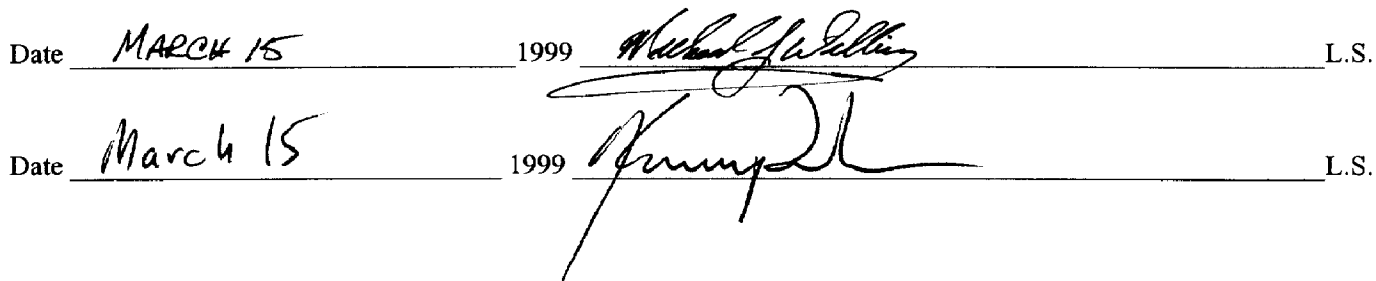 Date MARCH 15 1999 L.S.
Date March 15 1999 L.S.